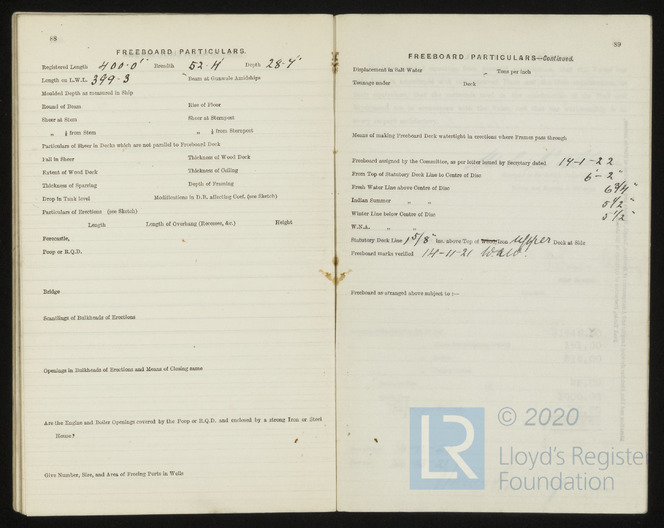 88
FREEBOARD PARTICULARS.
Registered Length 400.0' Breadth 52.4' Depth 28.4'
Length on L.W.L. 399.3 Beam at Gunwale Amidships
Moulded Depth as measured in Ship
Round of Beam Rise of Floor
Sheer at Stem Sheer at Sternpost
" ¼ from Stem " ¼ from Sternpost
Particulars of Sheer in Decks which are not parallel to Freeboard Deck
Fall in Sheer Thickness of Wood Deck
Extent of Wood Deck Thickness of Ceiling
Thickness of Sparring Depth of Framing
Drop in Tank level Modifications in D.B. affecting Coef. (see Sketch)
Particulars of Erections (see Sketch)
Length Length of Overhang (Recesses, &c.) Height
Forecastle,
Poop or R.Q.D.
Bridge
Scantlings of Bulkheads of Erections
Openings in Bulkheads of Erections and Means of Closing same
Are the Engine and Boiler Openings covered by the Poop or R.Q.D. and enclosed by a strong Iron or Steel
House?
Give Number, Size, and Area of Freeing Ports in Wells
89
FREEBOARD PARTICULARS—Continued.
Displacement in Salt Water " Tons per inch
Tonnage under Deck
Means of making Freeboard Deck watertight in erections where Frames pass through
Freeboard assigned by the Committee, as per letter issued by Secretary dated 14-1-22
From Top of Statutory Deck Line to Centre of Disc 6'-2"
Fresh Water Line above Centre of Disc 6¾"
Indian Summer " " 5½"
Winter Line below Centre of Disc 5½"
W.N.A. " "
Statutory Deck Line 1 5/8" ins. above Top of Wood Iron Upper Deck at Side
Freeboard marks verified 14-11-21
Freeboard as arranged above subject to :—
LR
© 2020
Lloyd's Register
Foundation